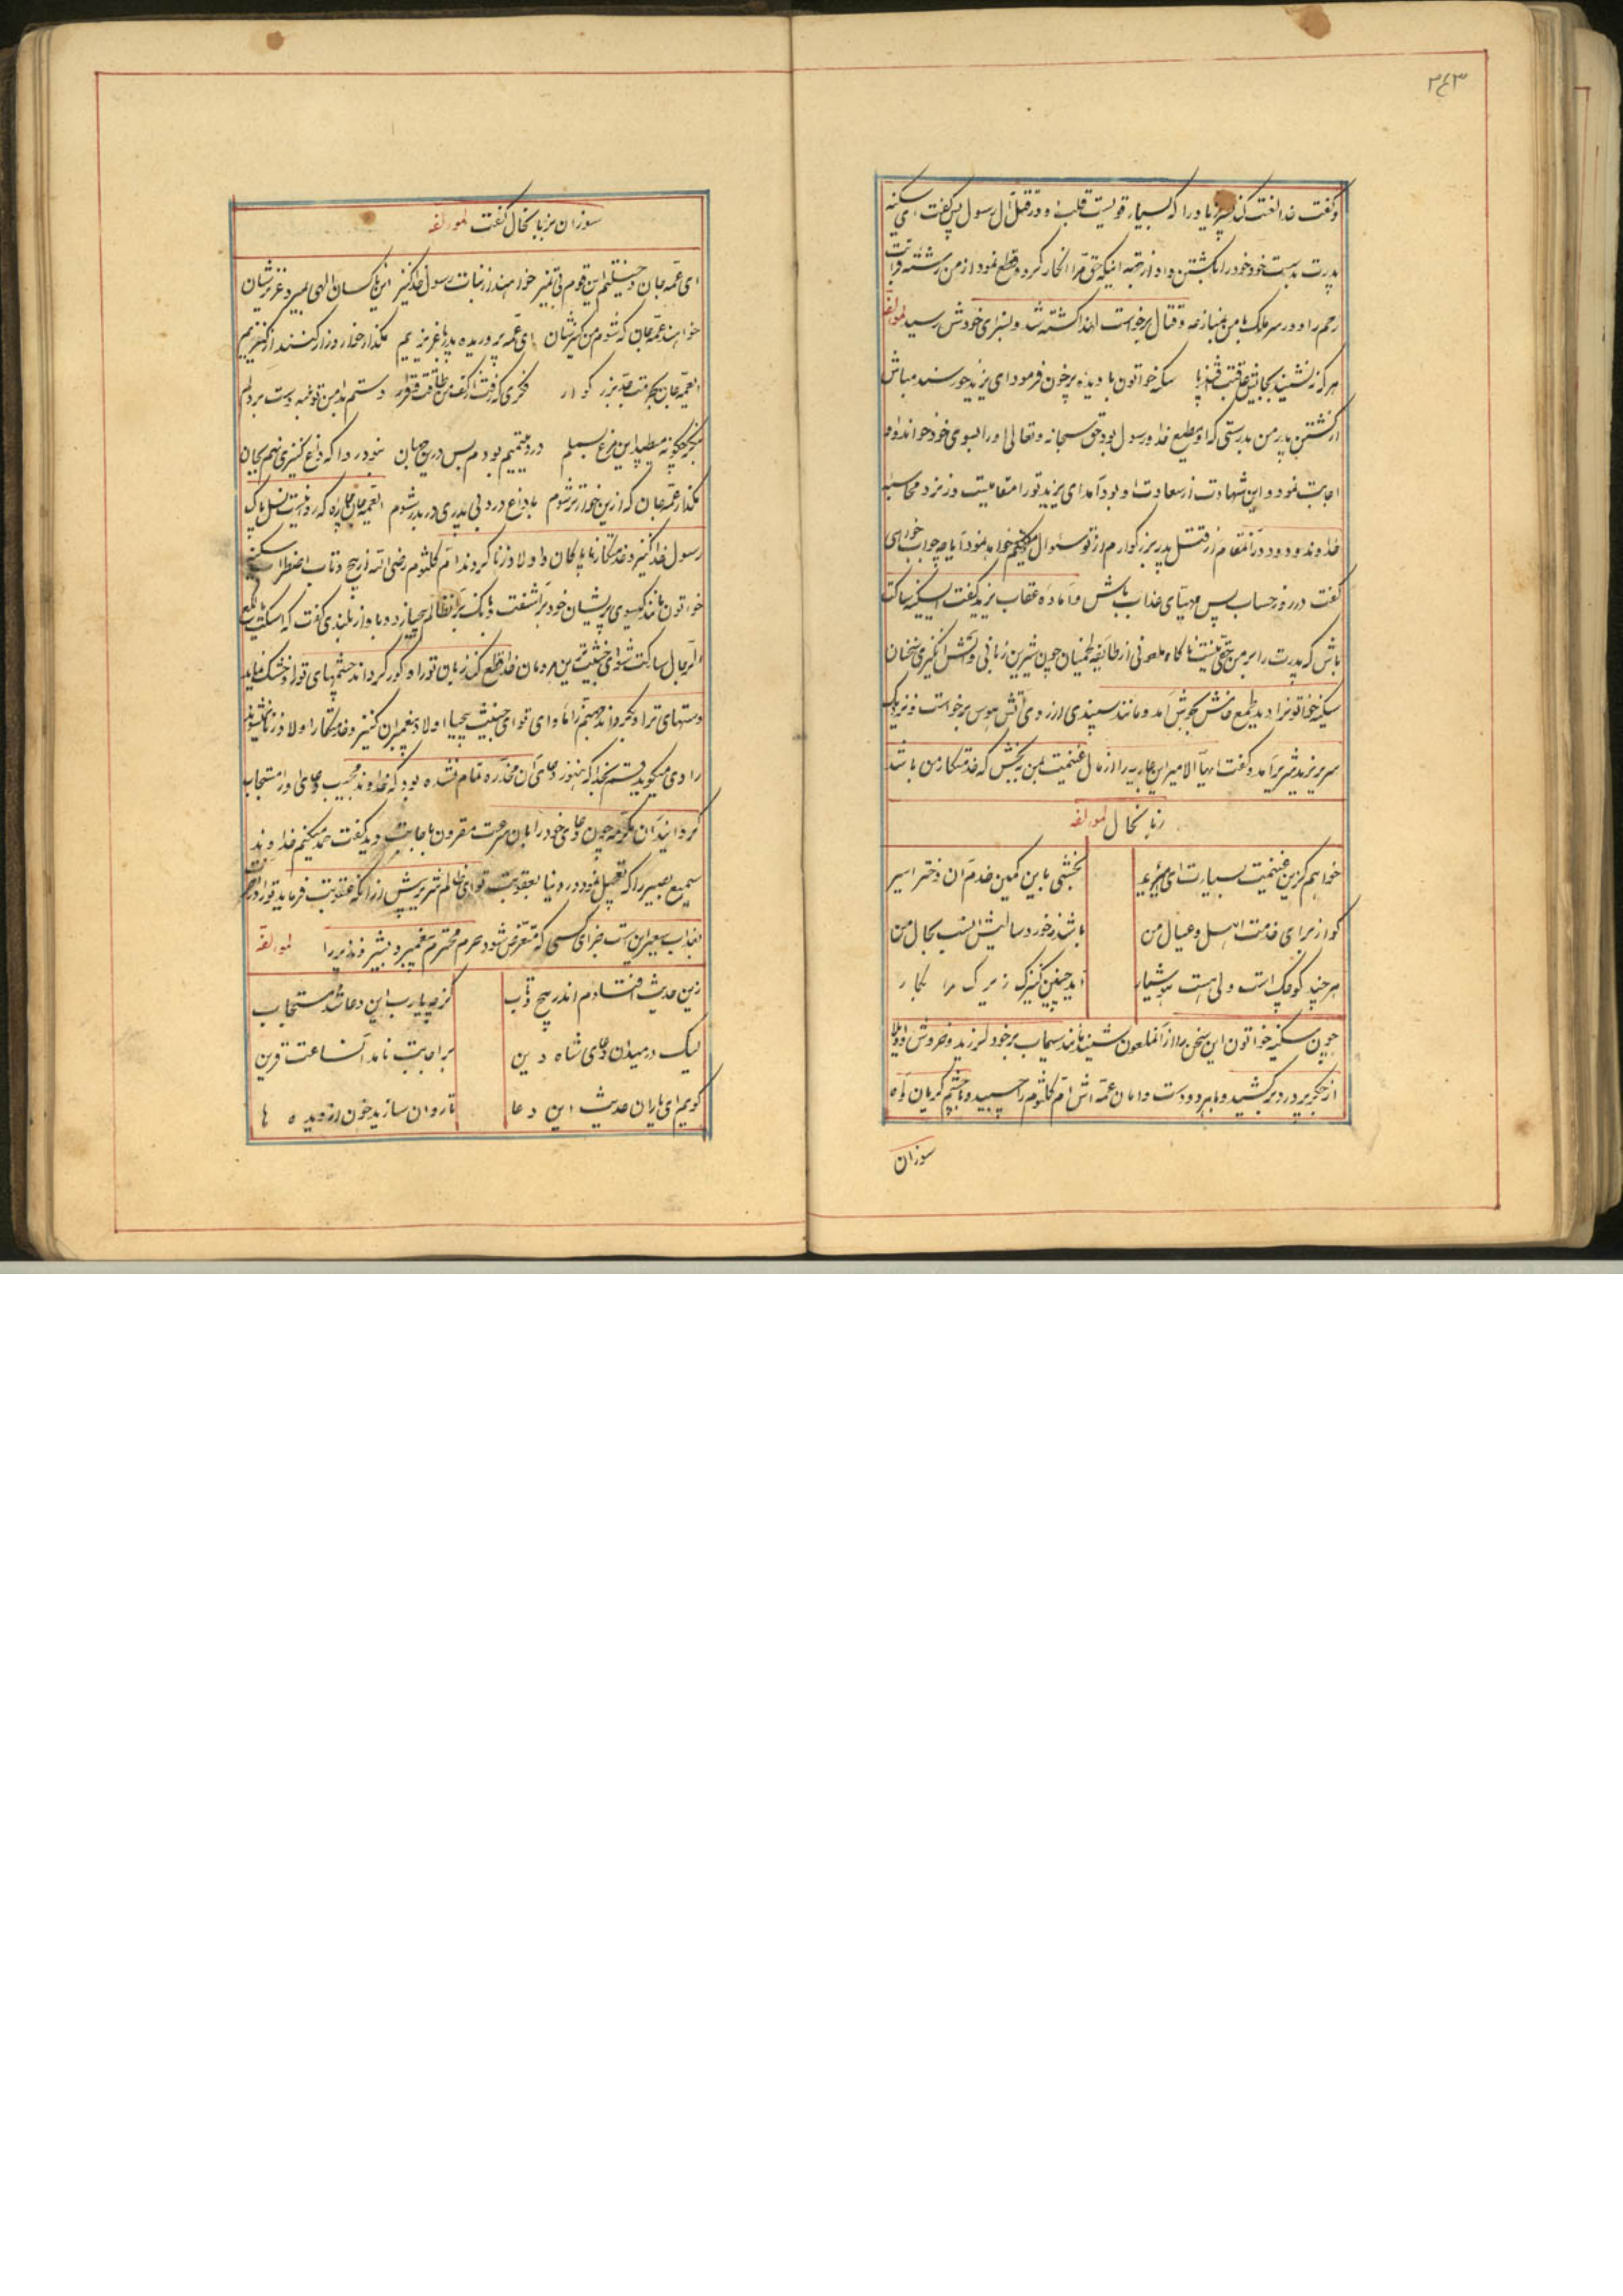 ۳۴۳
وگفت خدا لعنت کند پسر زیاد را که بسیار قویست قلب او در قتل آل رسول پس گفت ای سکینه
پدرت بدست خود خود را بکشتن داد از جهة اینکه حق مرا انکار کرد و قطع نمود از من رشته قرابت
رحم را و در سر ملک با من بمنازعه و قتال برخواست لهذا کشته شد و بسزای خودش رسید لمولفه
هر که نه نشیند بجایش عاقبت سکینه خواتون با دیده پرخون فرمود ای یزید خورسند مباش
از کشتن پدر من بدرستی که او مطیع خدا و رسول بود حق سبحانه و تعالی او را بسوی خود خواند او
اجابت نمود و این شهادت از سعادت او بود اما ای یزید تو را مقامیست در نزد محاسبه
خداوند ودود در آنمقام از قتل پدر بزرگوارم از تو سئوال خواهد نمود آیا چه جواب خواهی
گفت در روز حساب پس مهیای عذاب باش و آماده عقاب یزید گفت ای سکینه ساکت
باش که پدرت را بر من حقی نیست ناگاه ملعونی از طایفه لخمیان چون شیرین زبانی و آتش انگیزی سخنان
سکینه خواتونرا دید طمع خامش بجوش آمد و مانند سپندی از روی آتش هوس برخواست و نزدیک
سریر یزید شریر آمد و گفت ایها الامیر این جاریه را از مال غنیمت بمن به بخش که خدمتکار من باشد
زبانحال لمولفه
خواهم کزین غنیمت بسیارت ای امیر بخشی باین کمین خدم آن دختر اسیر
کو از برای خدمت اهل و عیال من باشد ز خورد سالیش انسب بحال من
هر چند کوچک است ولی هست هوشیار آید چنین کنیزک زیرک مرا بکار
چون سکینه خواتون این سخن را از آنملعون شنید مانند سیماب برخود لرزید و خروش واویلا
از جگر پر درد برکشید و با هر دو دست دامان عمه اش ام کلثوم را چسپید و با چشم گریان و آه
سوزان
سوزان بزبانحال گفت لمولفه
ای عمه جان این قوم بی تمیز خواهند از بنات رسول خدا کنیز این ناکسان الهی بمیرد عزیزشان
خواهند عمه جان که شوم من کنیزشان ای عمه پروریده پدر با عزیزیم مگذار خوار و زار کنند از کنیزیم
ایعمه جان بحرمت جد بزرگوار فکری که رفت از کف من طاقت و قرار دستم بدامن تو بنه دست بر دلم
بنگر چگونه میطپد این مرغ بسملم درد یتیم بودم بس در جهان نبود روا که داغ کنیزی نهم بجان
مگذار عمه جان که ازین خوارتر شوم با داغ درد بی پدری در بدر شوم ایعمه جان چاره که رواست نسل پاک
رسول خدا کنیز و خدمتکار ناپاکان و اولاد زنا گردند ام کلثوم رضی الله از پیچ و تاب اضطراب سکینه
خواتون مانند گیسوی پریشان خود برآشفت و بانگ بر آنظالم بیحیا زد و با واز بلندی گفت که اسکت یا لکع
الرجال ساکت شو ای خبیث ترین مردمان خدا قطع کند زبان تو را و کور گرداند چشمهای تو را و خشک نماید
دستهای ترا و بگرداند جهنم را ماوای تو ای خبیث بیحیا اولاد پیغمبران کنیز و خدمتکار اولاد زنا نمیشوند
راوی میگوید قسم بخدا که هنوز دعای آن مخدره تمام نشده بود که خداوند مجیب دعای او را مستجاب
گردانید آن مکرمه چون دعای خود را بان سرعت مقرون باجابت دید گفت حمد میکنم خداوند
سمیع بصیر را که تعجیل نمود در دنیا بعقوبت تو ای ظالم شریر پیش از آنکه عقوبت فرماید تو را در آخرت
بعذاب سعیر این است جزای کسی که متعرض شود حرم محترم پیغمبر و بشیر و نذیر را لمولفه
زین حدیث افتادم اندر پیچ و تاب کز چه یارب این دعا شد مستجاب
لیک در میدان دعای شاه دین بر اجابت نامد آنساعت قرین
گویم ای یاران حدیث این دعا تا روان سازید خون از دیده ها